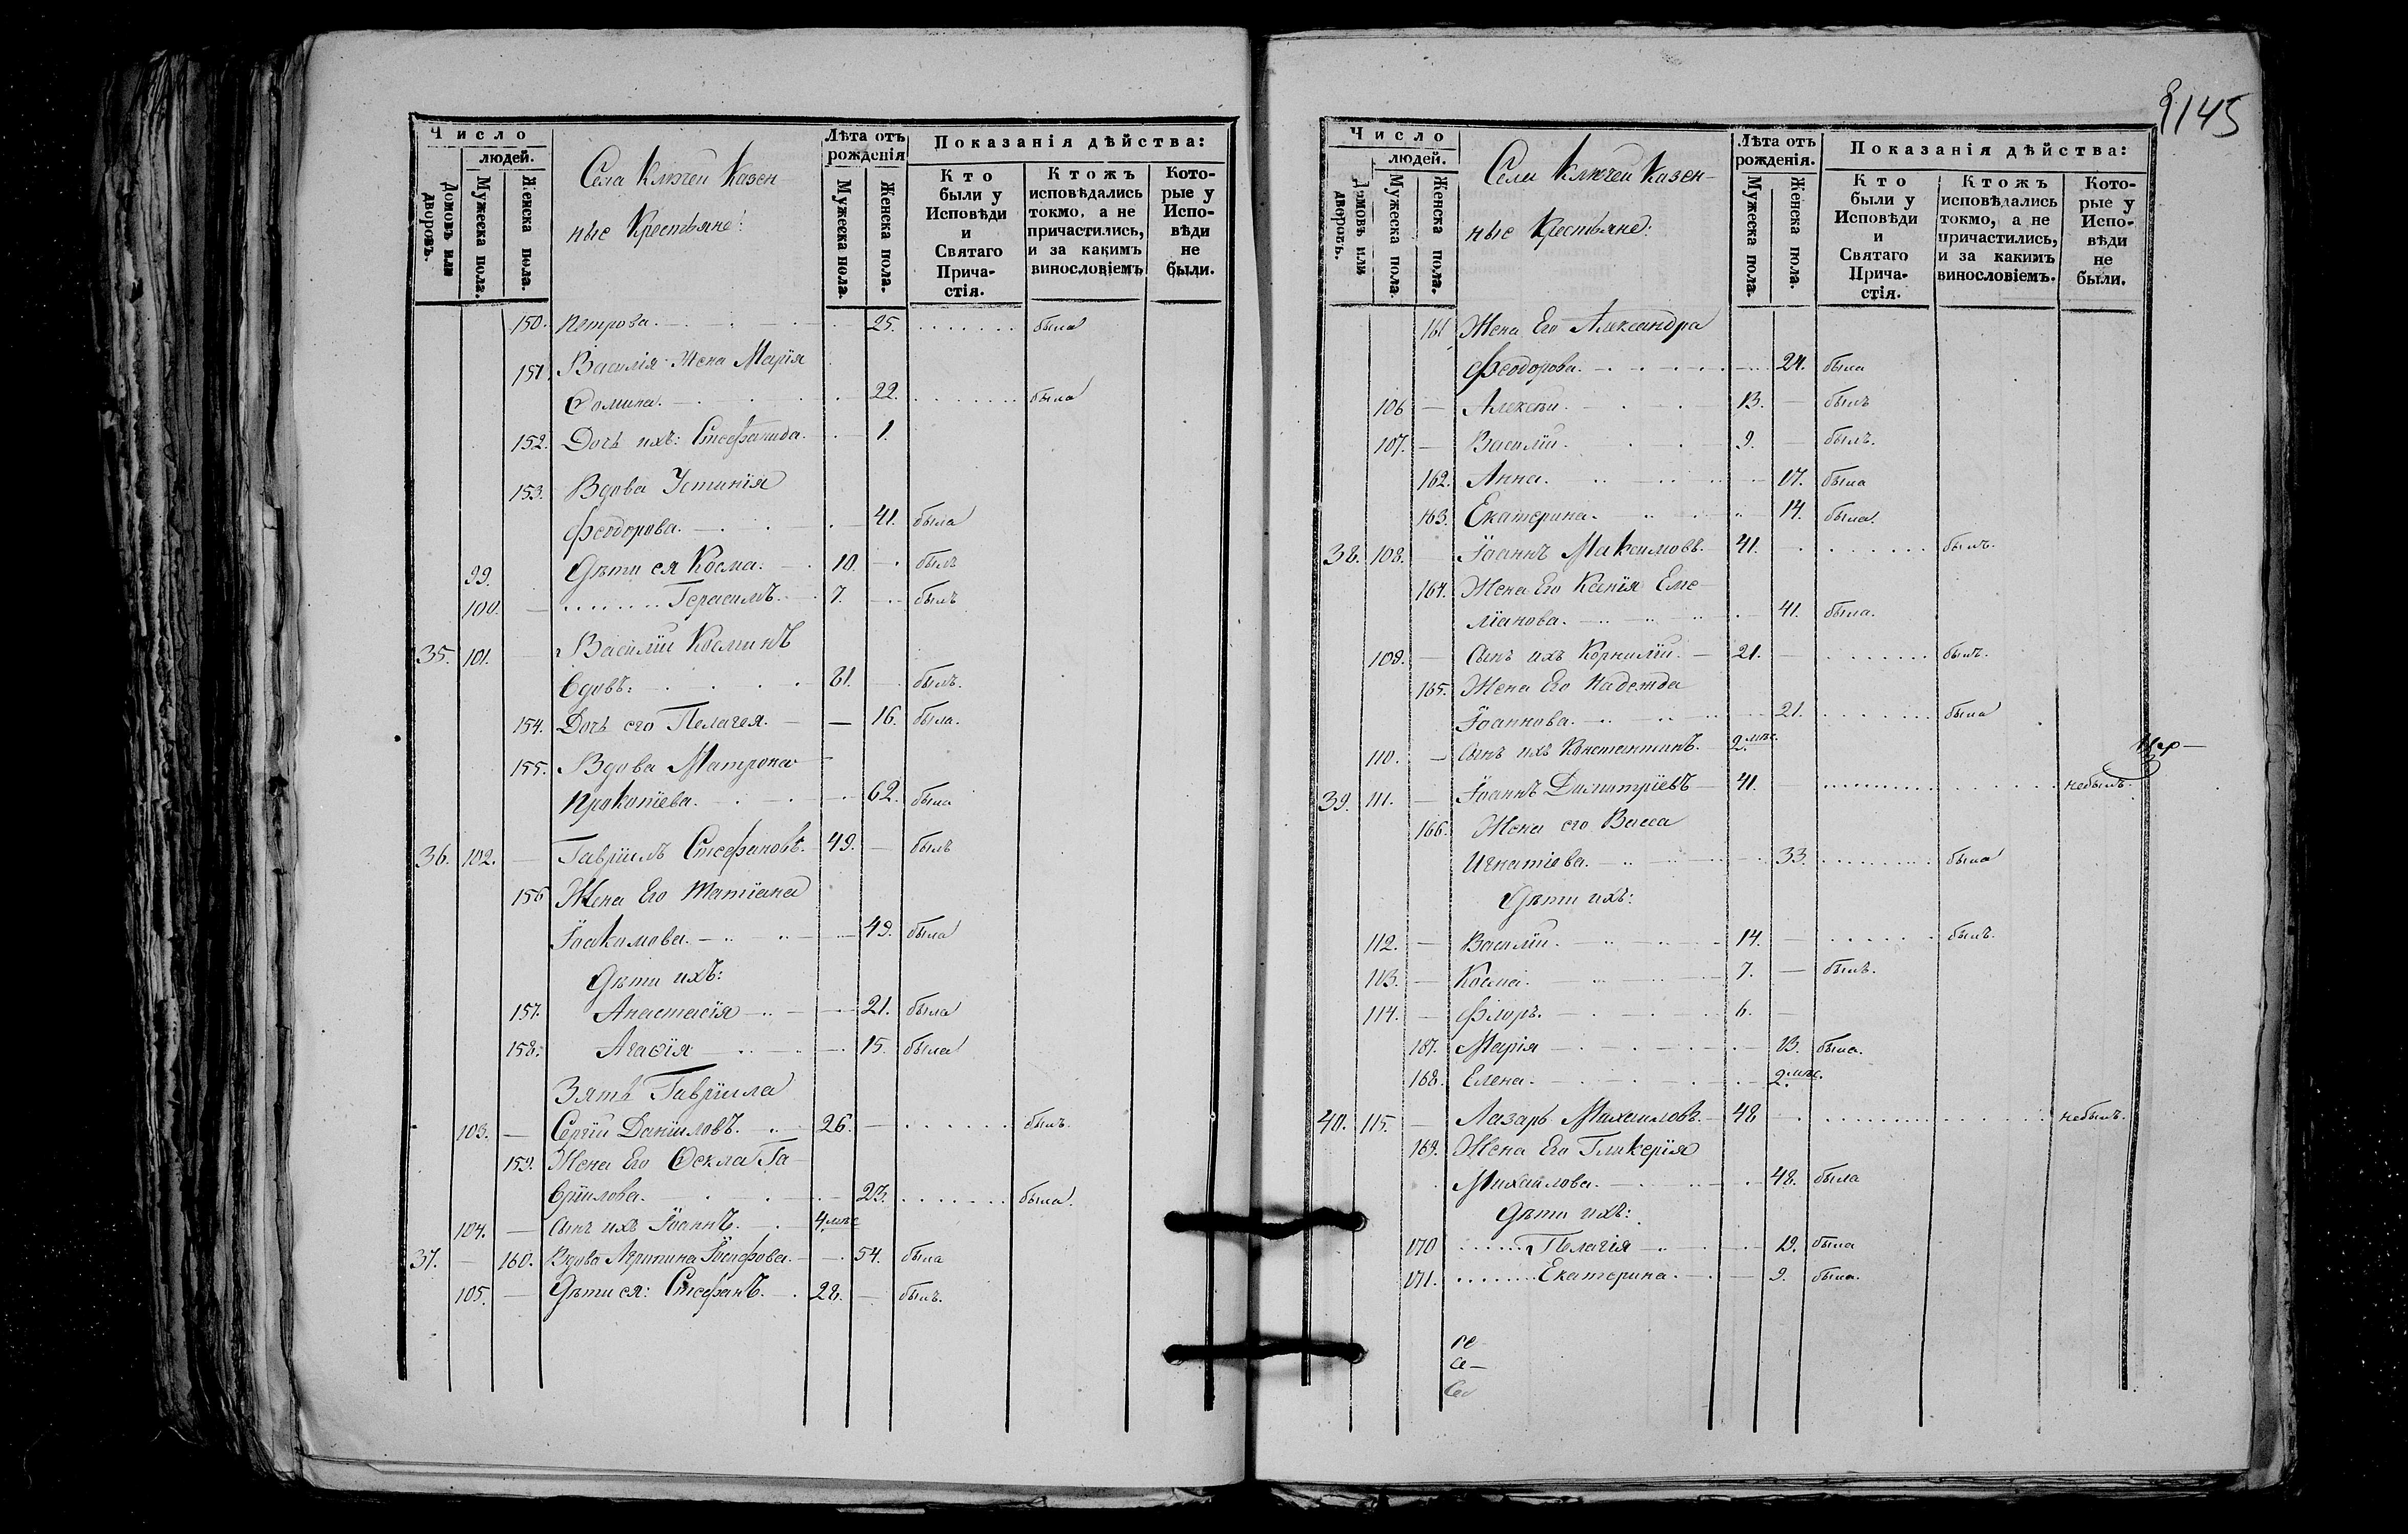 Число
людей.
Домовъ или дворовъ.
Мужеска пола.
Женска пола.
Села Ключей Казен-
ные Крестьяне:
Лѣта отъ рожденія
Мужеска пола.
Женска пола.
Показанія дѣйства:
Кто были у Исповѣди и Святаго Прича-стія.
Ктожъ исповѣдались токмо, а не причастились, и за какимъ винословіемъ
Кото-рые у Испо-вѣди не были.
150. Петрова. 25. была
151. Василія Жена Марія
Ѳомина. 22. была
152. Дочь ихъ: Стефанида. 1.
153. Вдова Устинія
Феодорова. 41. была
99. Дѣти ея Косма. 10. былъ
100. Герасимъ. 7. былъ
35. 101. Василій Косминъ
вдовъ: 61. былъ.
154. Дочь его Пелагея. 16. была.
155. Вдова Матрона
Прокопіева. 62. была
36. 102. Гавріилъ Стефановъ. 49. былъ
156 Жена Его Татіана
Іоакимова. 49. была
Дѣти ихъ:
157. Анастасія 21. была
158. Агаѳія 15. была
Зять Гавріила
103. Сергій Даніиловъ. 26. былъ.
159. Жена Его Ѳекла Га-
вріилова. 23. была.
104. Сынъ ихъ Іоаннъ. 4. мѣс
37. 160. Вдова Агрипина Іосифова. 54. была
105. Дѣти ея: Стефанъ. 28. былъ.
145
Число
людей.
Домовъ или дворовъ.
Мужеска пола.
Женска пола.
Села Ключей Казен-
ные Крестьяне:
Лѣта отъ рожденія.
Мужеска пола.
Женска пола.
Показанія дѣйства:
Кто были у Исповѣди и Святаго Прича-стія.
Ктожъ исповѣдались токмо, а не причастились, и за какимъ винословіемъ.
Кото-рые у Испо-вѣди не были.
161 Жена Его Александра
Феодорова. 24. была
106 Алексѣй. 13. былъ
107. Василій. 9. былъ.
162. Анна. 17. была
163. Екатерина. 14. была.
38. 108. Іоаннъ Максимовъ. 41. былъ.
164. Жена Его Ксенія Еме-
ліанова. 41. была.
109. Сынъ ихъ Корнилій. 21. былъ.
165. Жена Его Надежда
Іоаннова. 21. была
110. Сынъ ихъ Константинъ. 2. мѣс.
39. 111. Іоаннъ Димитріевъ 41. небылъ.
166. Жена его Васса
Игнатіева. 33. была
Дѣти ихъ:
112. Василій. 14. былъ.
113. Косма. 7. былъ.
114. Флоръ. 6.
167. Марія 13. была.
168. Елена. 2. мѣс.
40. 115. Лазарь Михаиловъ. 48 небылъ.
169. Жена Его Гликерія
Михайлова. 48. была
Дѣти ихъ:
170 Пелагія 19. была
171. Екатерина. 9. была.